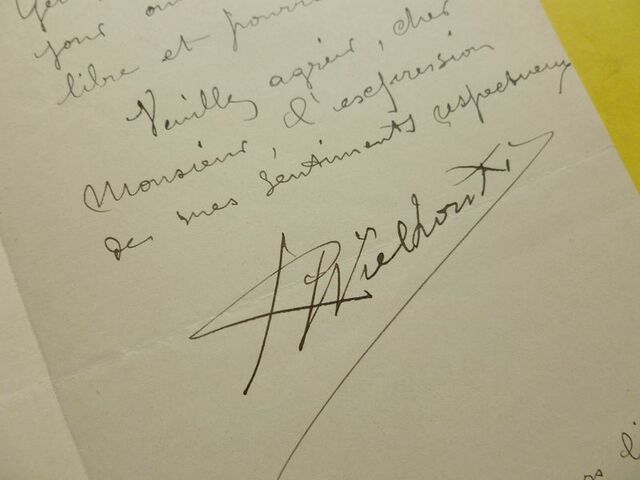 jour
libre et
Veuillez agréer, cher
Monsieur, l'expression
de mes sentiments respectueux
Wielhorski